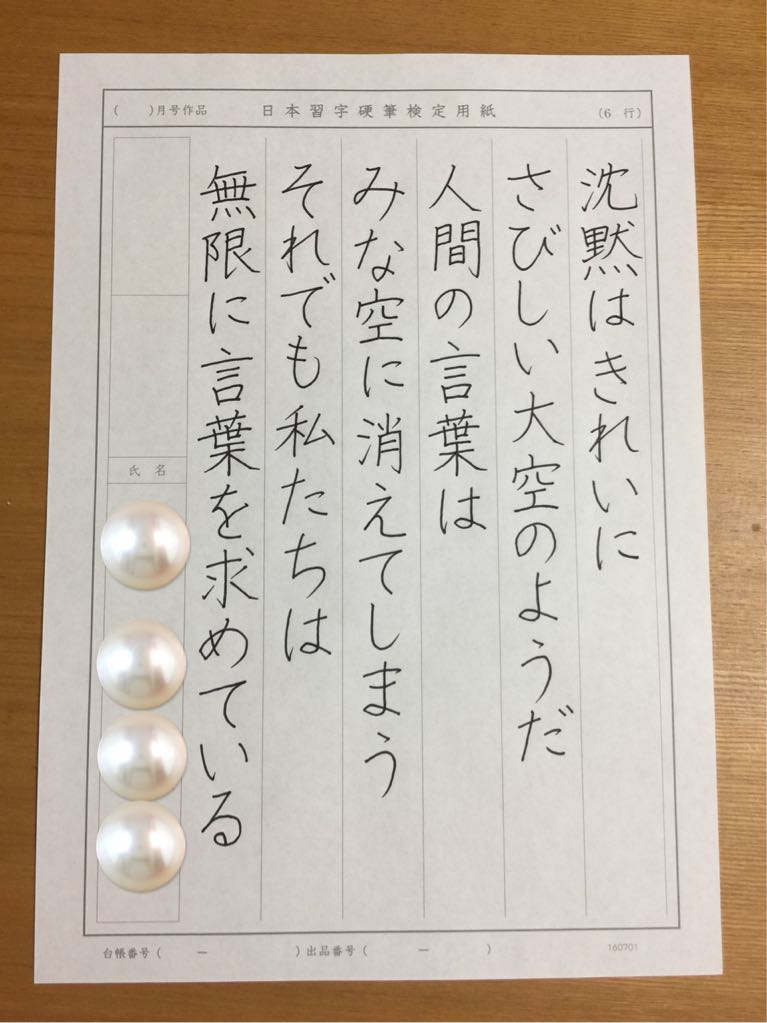 (　　)月号作品　日本習字硬筆検定用紙　(6　行)
沈黙はきれいに
さびしい大空のようだ
人間の言葉は
みな空に消えてしまう
それでも私たちは
無限に言葉を求めている
氏名
台帳番号(　　－　　)出品番号(　　－　　)
160701